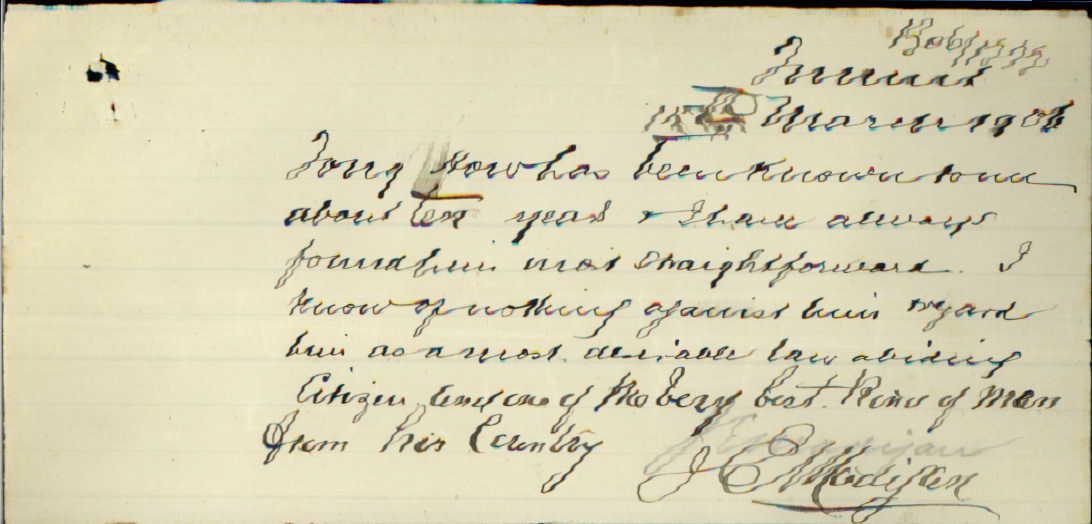 March 1906
Tong Yow has been known to me
about ten years & I have always
found him most straightforward. I
know of nothing against him regard
him as a most desirable law abiding
Citizen and one of the very best kind of men
from his Country